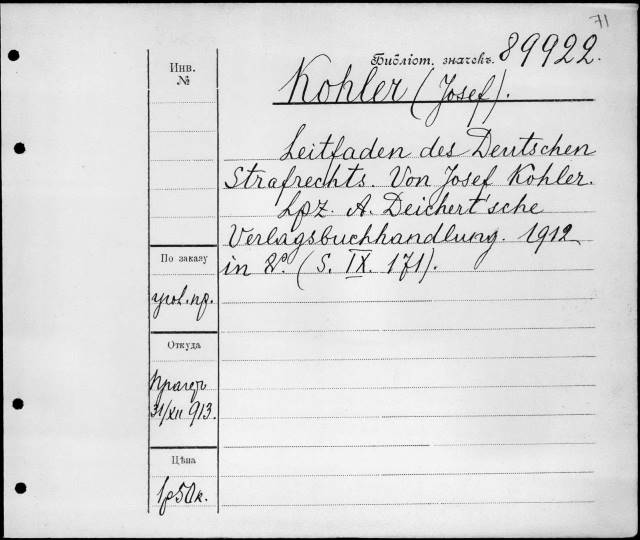 71
Библіот. значекъ. 89922.
Инв.
№
Kohler (Josef).
Leitfaden des Deutschen
Strafrechts. Von Josef Kohler.
Lpz. A. Deichert'sche
Verlagsbuchhandlung. 1912
in 8º. (S. IX. 171).
По заказу
угол. пр.
Откуда
31/XII 913.
Цѣна
1 р 50 к.